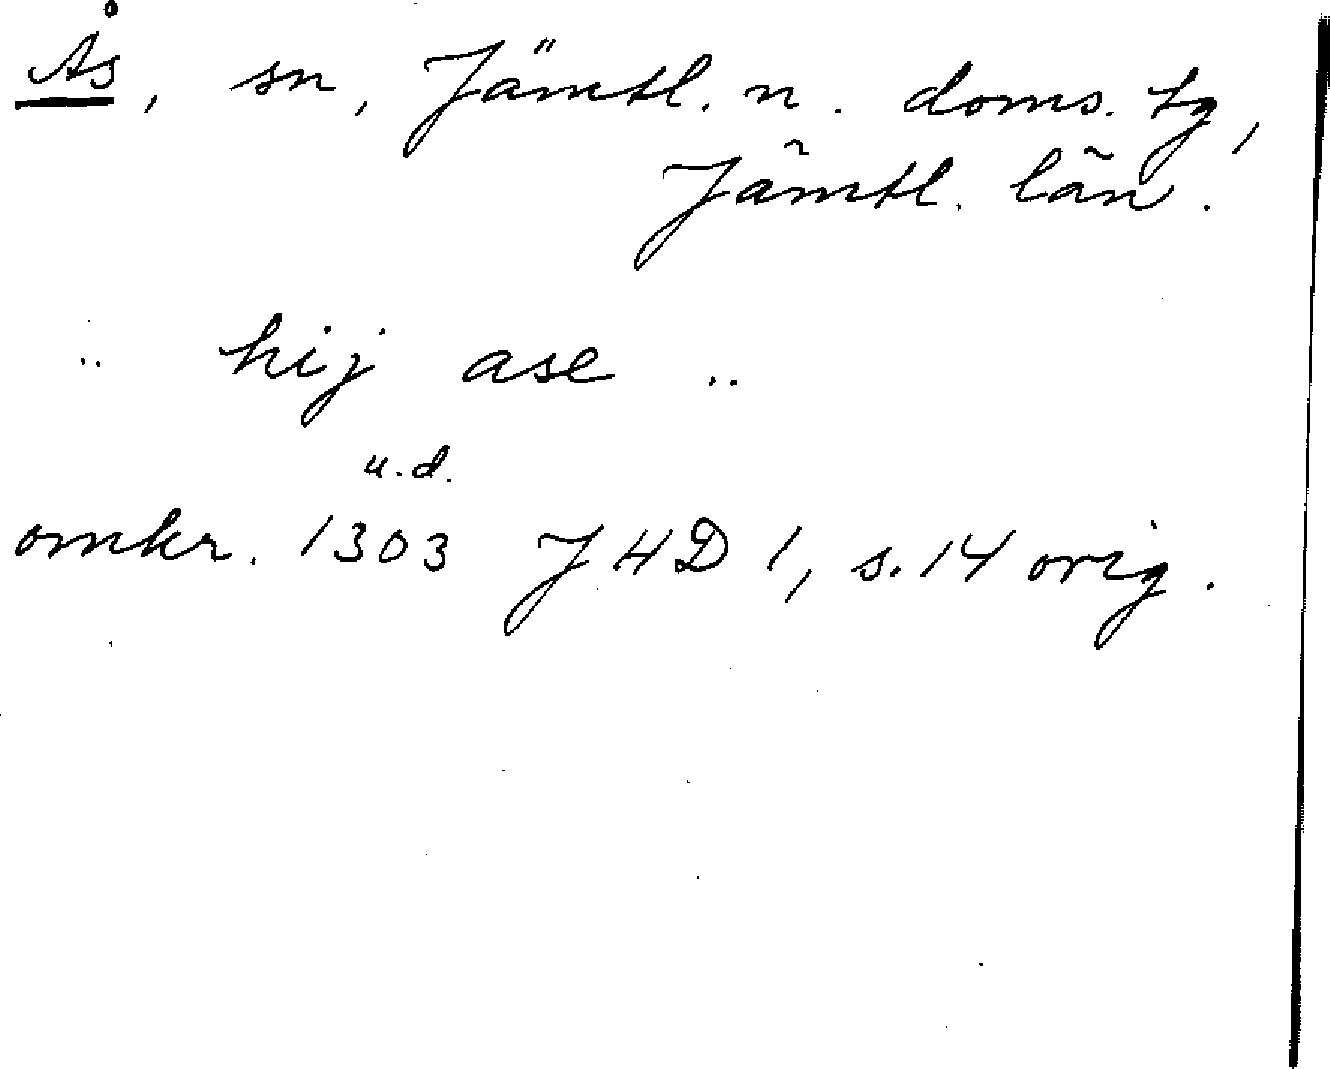 Ås, sn, Jämtl. n. doms. tg,
Jämtl. län.
.. hij ase ..
u.d.
omkr. 1303 J H D 1, s. 14 orig.